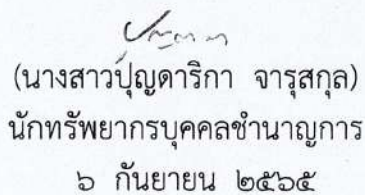 (นางสาวปุญดาริกา จารุสกุล)
นักทรัพยากรบุคคลชำนาญการ
๖ กันยายน ๒๕๖๕